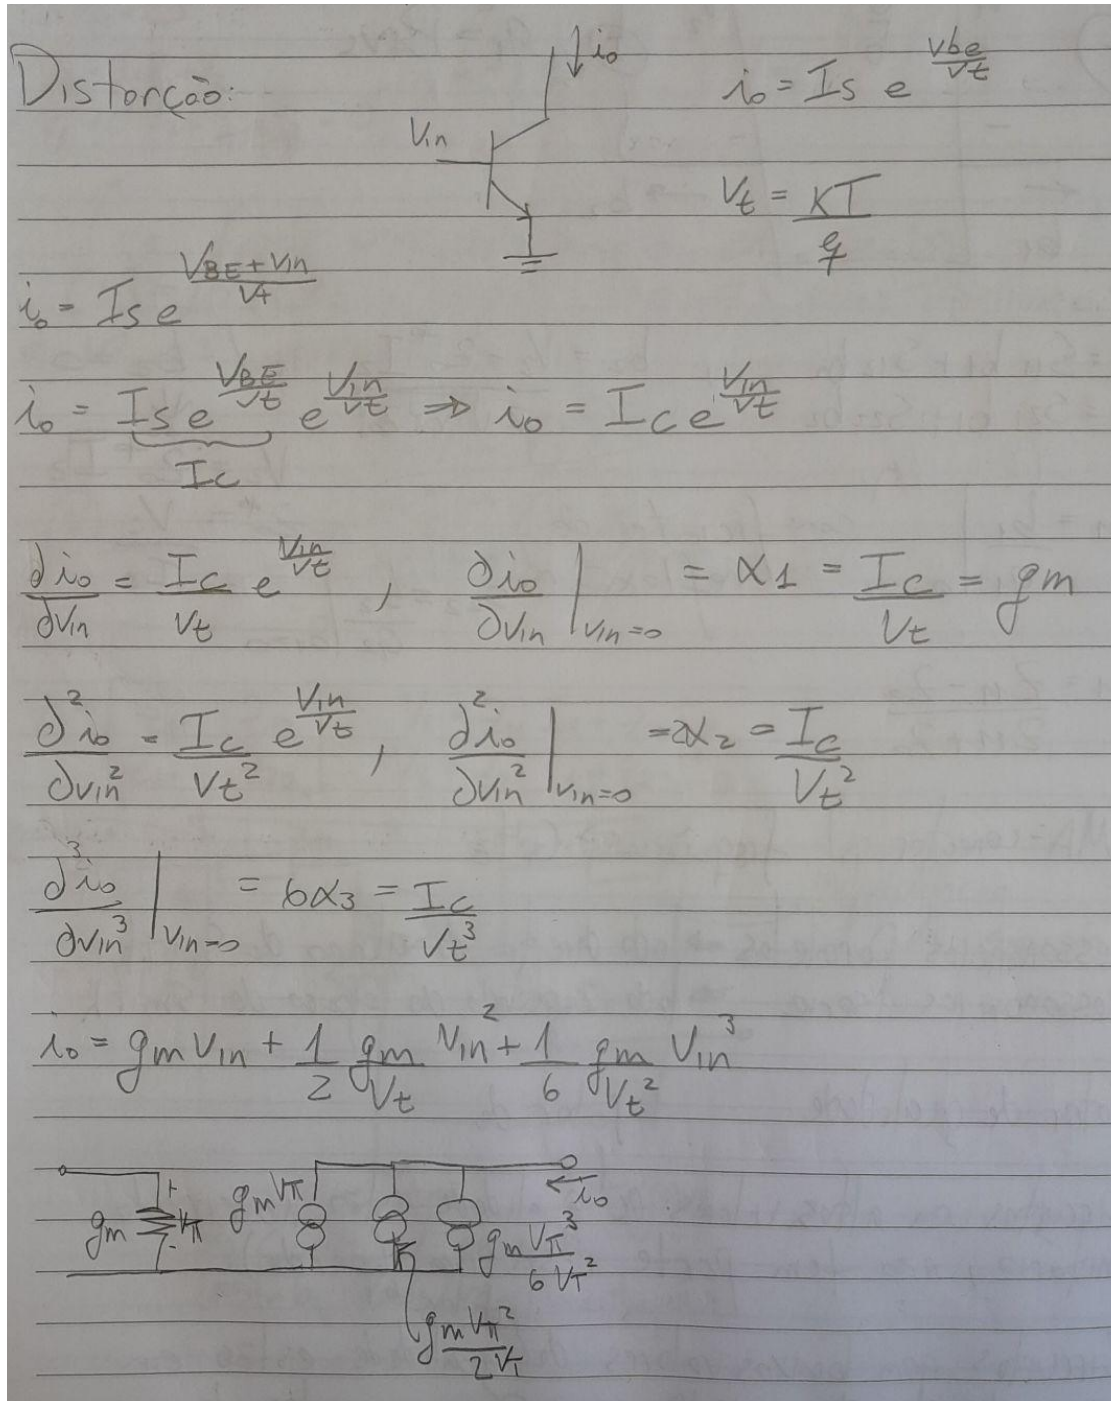 Distorção:
io
Vin
io = Is e^(Vbe/Vt)
Vt = KT/q
io = Is e^((VBE+Vin)/Vt)
io = Is e^(VBE/Vt) e^(Vin/Vt) ⇒ io = Ic e^(Vin/Vt)
Ic
∂io/∂Vin = Ic/Vt e^(Vin/Vt) , ∂io/∂Vin |Vin=0 = α1 = Ic/Vt = gm
∂²io/∂Vin² = Ic/Vt² e^(Vin/Vt) , ∂²io/∂Vin² |Vin=0 = 2α2 = Ic/Vt²
∂³io/∂Vin³ |Vin=0 = 6α3 = Ic/Vt³
io = gm Vin + 1/2 gm/Vt Vin² + 1/6 gm/Vt² Vin³
gm + Vπ - gm Vπ io
gm Vπ³/6VT²
gm Vπ²/2VT